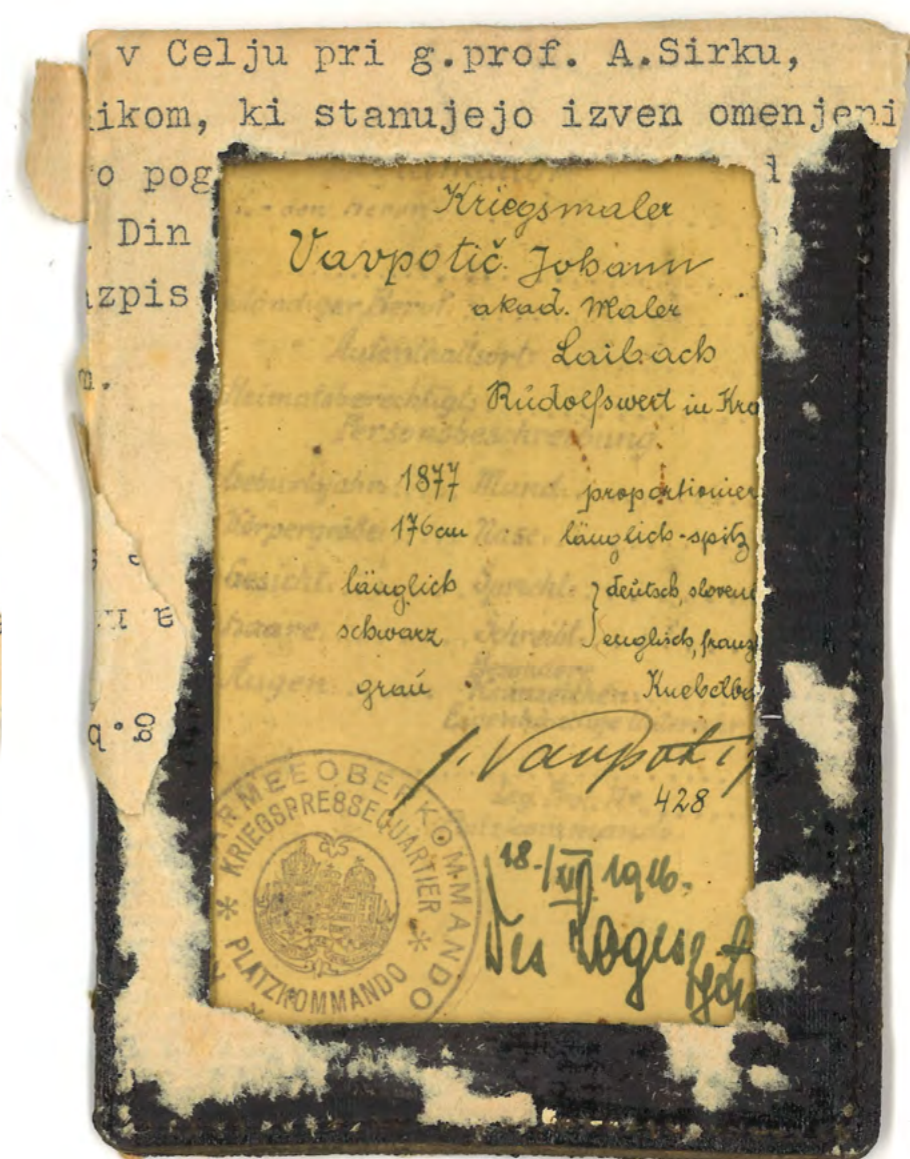 v Celju pri g.prof. A.Sirku,
ikom, ki stanujejo izven omenjeni
o pog
Din
zpis
m.
Kriegsmaler
Vavpotič Johann
akad. Maler
Aufenthaltsort: Laibach
Heimatsberechtigt: Rudolfswert in Kra
Personsbeschreibung
Geburtsjahr: 1877 Mund: proportionier
Körpergröße: 176 cm Nase: länglich-spitz
Gesicht: länglich Spricht: } deutsch, sloveni
Haare: schwarz Schreibt: } englisch, franz
Augen: grau Besondere Kennzeichen: Knebelba
J. Vavpotič
428
Platzkommando
18./VII. 1916.
Des
ARMEEOBERKOMMANDO
* KRIEGSPRESSEQUARTIER *
PLATZKOMMANDO